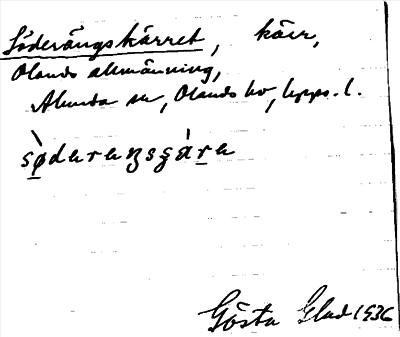 Söderängskärret, kärr,
Olands allmänning,
Alunda sn, Olands hd, Upps. l.
sø̀darаŋsɕą̀ra
Gösta Glad 1936